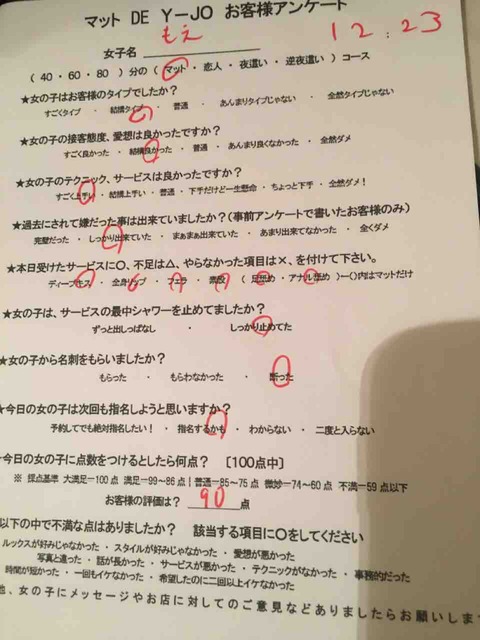 マット DE Y－JO お客様アンケート
12.23
女子名 もえ
（ 40 ・ 60 ・ 80 ）分の（ マット ・ 恋人 ・ 夜這い ・ 逆夜這い ）コース
★女の子はお客様のタイプでしたか？
すごくタイプ ・ 結構タイプ ・ 普通 ・ あんまりタイプじゃない ・ 全然タイプじゃない
★女の子の接客態度、愛想は良かったですか？
すごく良かった ・ 結構良かった ・ 普通 ・ あんまり良くなかった ・ 全然ダメ
★女の子のテクニック、サービスは良かったですか？
すごく上手い ・ 結構上手い ・ 普通 ・ 下手だけど一生懸命 ・ ちょっと下手 ・ 全然ダメ！
★過去にされて嫌だった事は出来ていましたか？（事前アンケートで書いたお客様のみ）
完璧だった ・ しっかり出来ていた ・ まぁまぁ出来ていた ・ あまり出来てなかった ・ 全くダメ
★本日受けたサービスに〇、不足は△、やらなかった項目は×、を付けて下さい。
ディープキス ・ 全身リップ ・ フェラ ・ 素股 （ 足舐め ・ アナル舐め ）←（）内はマットだけ
★女の子は、サービスの最中シャワーを止めてましたか？
ずっと出しっぱなし ・ しっかり止めてた
★女の子から名刺をもらいましたか？
もらった ・ もらわなかった ・ 断った
★今日の女の子は次回も指名しようと思いますか？
予約してでも絶対指名したい！ ・ 指名するかも ・ わからない ・ 二度と入らない
★今日の女の子に点数をつけるとしたら何点？ 〔100点中〕
※ 採点基準 大満足＝100点 満足＝99～86点 | 普通＝85～75点 微妙＝74～60点 不満＝59点以下
お客様の評価は？ 90 点
以下の中で不満な点はありましたか？ 該当する項目に〇をしてください
ルックスが好みじゃなかった ・ スタイルが好みじゃなかった ・ 愛想が悪かった
写真と違った ・ 話が長かった ・ サービスが悪かった ・ テクニックがなかった ・ 事務的だった
時間が短かった ・ 一回もイケなかった ・ 希望したのに二回以上イケなかった
他、女の子にメッセージやお店に対してのご意見などありましたらお願いしま